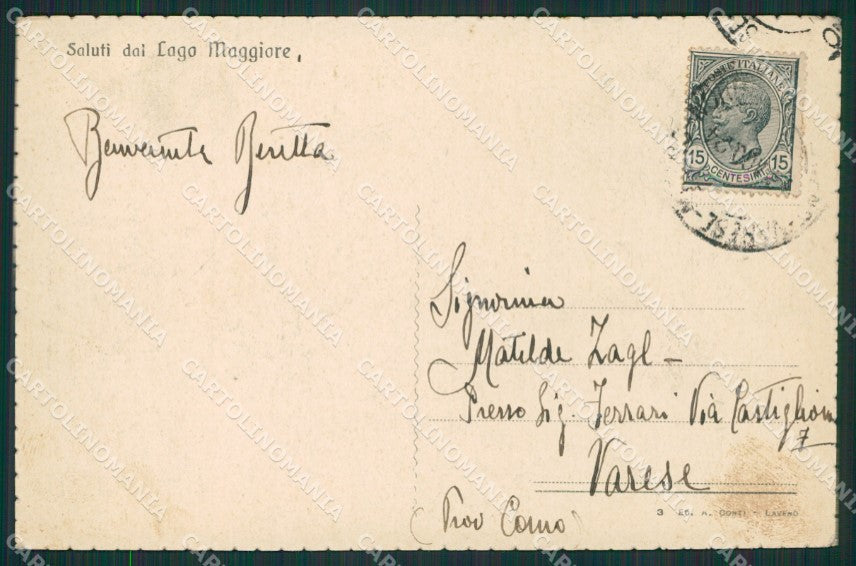 Saluti dal Lago Maggiore
Benvenuta Beretta
POSTE ITALIANE
15 15
CENTESIMI
Signorina
Matilde Zagl -
Presso Sig. Ferrari Via Castiglioni
7
Varese
(Prov Como)
3 Ed. A. Conti - Laveno
CARTOLINOMANIA